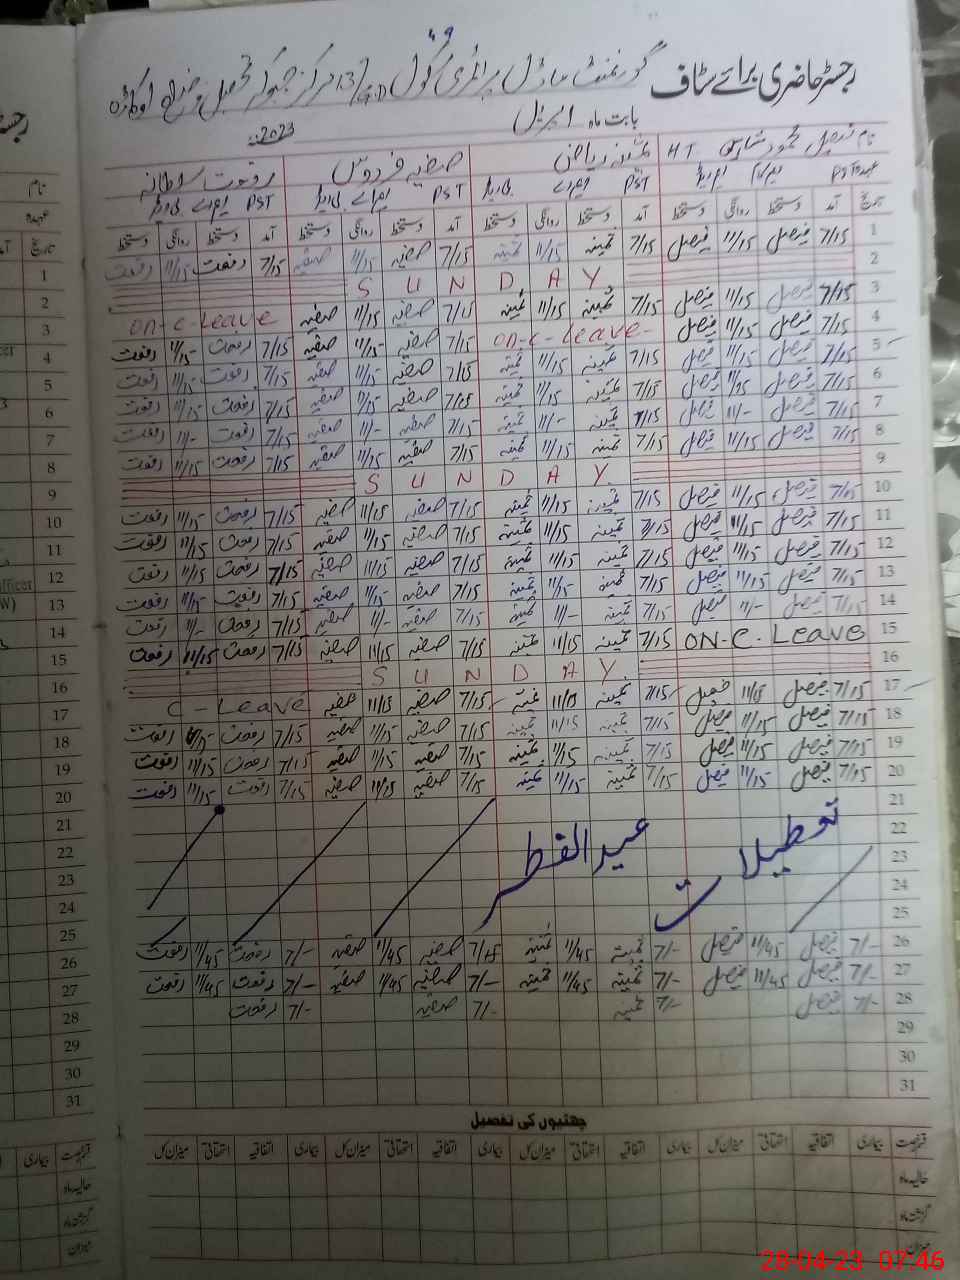 رجسٹر حاضری برائے سٹاف گورنمنٹ ماڈل پرائمری سکول 49
بابت ماہ اپریل 2023
نام فیصل محمود HT ثمینہ ریاض صفیہ فردوس رفعت سلطانہ
عہدہ PST ایم اے PST ایم اے بی ایڈ PST ایم اے بی ایڈ
تاریخ آمد دستخط روانگی دستخط آمد دستخط روانگی دستخط آمد دستخط روانگی دستخط آمد دستخط روانگی دستخط
1 7/15 فیصل 11/15 فیصل 7/15 ثمینہ 11/15 ثمینہ 7/15 صفیہ 11/15 صفیہ 7/15 رفعت 11/15 رفعت
2 S U N D A Y
3 7/15 فیصل 11/15 فیصل 7/15 ثمینہ 11/15 ثمینہ 7/15 صفیہ 11/15 صفیہ ON-C-Leave
4 7/15 فیصل 11/15 فیصل ON-C-Leave 7/15 صفیہ 11/15 صفیہ 7/15 رفعت 11/15 رفعت
5 7/15 فیصل 11/15 فیصل 7/15 ثمینہ 11/15 ثمینہ 7/15 صفیہ 11/15 صفیہ 7/15 رفعت 11/15 رفعت
6 7/15 فیصل 11/15 فیصل 7/15 ثمینہ 11/15 ثمینہ 7/15 صفیہ 11/15 صفیہ 7/15 رفعت 11/15 رفعت
7 7/15 فیصل 11/- فیصل 7/15 ثمینہ 11/- ثمینہ 7/15 صفیہ 11/- صفیہ 7/15 رفعت 11/- رفعت
8 7/15 فیصل 11/15 فیصل 7/15 ثمینہ 11/15 ثمینہ 7/15 صفیہ 11/15 صفیہ 7/15 رفعت 11/15 رفعت
9 S U N D A Y
10 7/15 فیصل 11/15 فیصل 7/15 ثمینہ 11/15 ثمینہ 7/15 صفیہ 11/15 صفیہ 7/15 رفعت 11/15 رفعت
11 7/15 فیصل 11/15 فیصل 7/15 ثمینہ 11/15 ثمینہ 7/15 صفیہ 11/15 صفیہ 7/15 رفعت 11/15 رفعت
12 7/15 فیصل 11/15 فیصل 7/15 ثمینہ 11/15 ثمینہ 7/15 صفیہ 11/15 صفیہ 7/15 رفعت 11/15 رفعت
13 7/15 فیصل 11/15 فیصل 7/15 ثمینہ 11/15 ثمینہ 7/15 صفیہ 11/15 صفیہ 7/15 رفعت 11/15 رفعت
14 7/15 فیصل 11/- فیصل 7/15 ثمینہ 11/- ثمینہ 7/15 صفیہ 11/- صفیہ 7/15 رفعت 11/- رفعت
15 ON-C-Leave 7/15 ثمینہ 11/15 ثمینہ 7/15 صفیہ 11/15 صفیہ 7/15 رفعت 11/15 رفعت
16 S U N D A Y
17 7/15 فیصل 11/15 فیصل 7/15 ثمینہ 11/15 ثمینہ 7/15 صفیہ 11/15 صفیہ C-Leave
18 7/15 فیصل 11/15 فیصل 7/15 ثمینہ 11/15 ثمینہ 7/15 صفیہ 11/15 صفیہ 7/15 رفعت رفعت
19 7/15 فیصل 11/15 فیصل 7/15 ثمینہ 11/15 ثمینہ 7/15 صفیہ 11/15 صفیہ 7/15 رفعت 11/15 رفعت
20 7/15 فیصل 11/15 فیصل 7/15 ثمینہ 11/15 ثمینہ 7/15 صفیہ 11/15 صفیہ 7/15 رفعت 11/15 رفعت
21
22 تعطیلات عیدالفطر
23
24
25
26 7/- فیصل 11/45 فیصل 7/- ثمینہ 11/45 ثمینہ صفیہ 11/45 صفیہ 7/- رفعت 11/45 رفعت
27 7/- فیصل 11/45 فیصل 7/- ثمینہ 11/45 ثمینہ 7/- صفیہ 11/45 صفیہ 7/- رفعت 11/45 رفعت
28 7/- فیصل 7/- ثمینہ 7/- صفیہ 7/- رفعت
29
30
31
چھٹیوں کی تفصیل
بیماری اتفاقیہ استحقاقی میزان کل بیماری اتفاقیہ استحقاقی میزان کل بیماری اتفاقیہ استحقاقی میزان کل بیماری اتفاقیہ استحقاقی میزان کل
حالیہ ماہ
گزشتہ ماہ
میزان
28-04-23 07:46